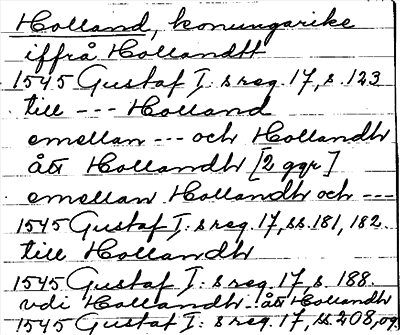 Holland, konungarike
iffrå Hollandtt
1545 Gustaf I: s reg. 17, s. 123
till --- Holland
emellan --- och Hollandh
ått Hollandh [2 ggr]
emellan Hollandh och ---
1545 Gustaf I: s reg. 17, ss. 181, 182.
till Hollandh
1545 Gustaf I: s reg. 17, s. 188.
vdi Hollandh. ått Hollandh
1545 Gustaf I: s reg. 17, ss. 208, 09